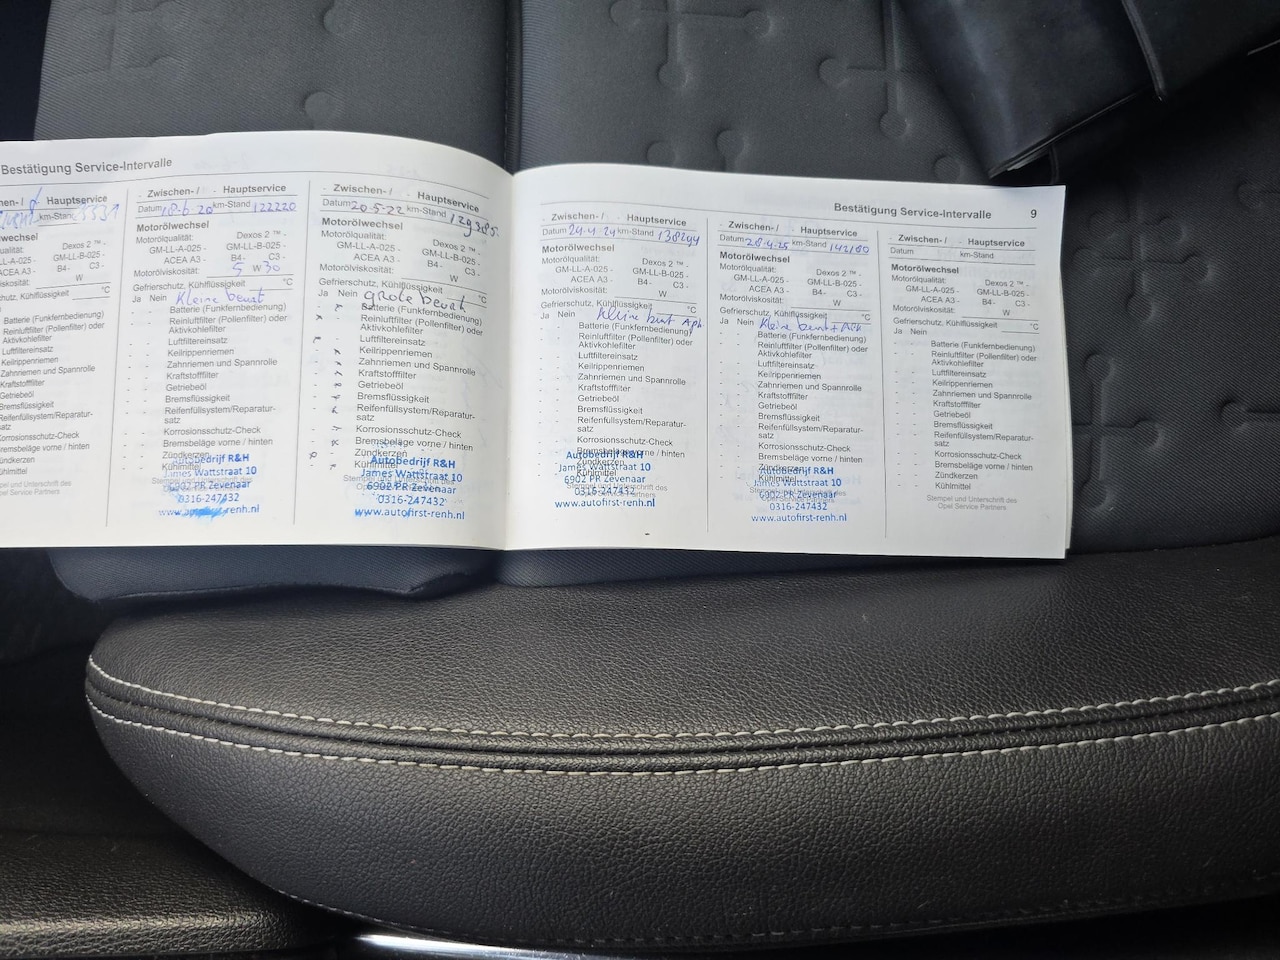 Bestätigung Service-Intervalle
Hauptservice
km-Stand
lwechsel
Dexos 2 ™ -
GM-LL-B-025 -
B4- C3 -
W
chutz, Kühlflüssigkeit °C
Batterie (Funkfernbedienung)
Reinluftfilter (Pollenfilter) oder
Aktivkohlefilter
Luftfiltereinsatz
Keilrippenriemen
Zahnriemen und Spannrolle
Kraftstofffilter
Getriebeöl
Bremsflüssigkeit
Reifenfüllsystem/Reparatur-
satz
Korrosionsschutz-Check
Bremsbeläge vorne / hinten
Zündkerzen
Kühlmittel
pel und Unterschrift des
Opel Service Partners
- Zwischen- / - Hauptservice
Datum 18-6-20 km-Stand 122220
Motorölwechsel
Motorölqualität: Dexos 2 ™ -
GM-LL-A-025 - GM-LL-B-025 -
ACEA A3 - B4- C3 -
Motorölviskosität: 5 W 30
Gefrierschutz, Kühlflüssigkeit °C
Ja Nein Kleine beurt
Batterie (Funkfernbedienung)
Reinluftfilter (Pollenfilter) oder
Aktivkohlefilter
Luftfiltereinsatz
Keilrippenriemen
Zahnriemen und Spannrolle
Kraftstofffilter
Getriebeöl
Bremsflüssigkeit
Reifenfüllsystem/Reparatur-
satz
Korrosionsschutz-Check
Bremsbeläge vorne / hinten
Zündkerzen
Kühlmittel
Autobedrijf R&H
James Wattstraat 10
6902 PR Zevenaar
0316-247432
www.autofirst-renh.nl
- Zwischen- / - Hauptservice
Datum 20-5-22 km-Stand 129385
Motorölwechsel
Motorölqualität: Dexos 2 ™ -
GM-LL-A-025 - GM-LL-B-025 -
ACEA A3 - B4- C3 -
Motorölviskosität: W
Gefrierschutz, Kühlflüssigkeit °C
Ja Nein grote beurt
Batterie (Funkfernbedienung)
Reinluftfilter (Pollenfilter) oder
Aktivkohlefilter
Luftfiltereinsatz
Keilrippenriemen
Zahnriemen und Spannrolle
Kraftstofffilter
Getriebeöl
Bremsflüssigkeit
Reifenfüllsystem/Reparatur-
satz
Korrosionsschutz-Check
Bremsbeläge vorne / hinten
Zündkerzen
Kühlmittel
Autobedrijf R&H
James Wattstraat 10
6902 PR Zevenaar
0316-247432
www.autofirst-renh.nl
Bestätigung Service-Intervalle 9
- Zwischen- / - Hauptservice
Datum 24-4-24 km-Stand 138244
Motorölwechsel
Motorölqualität: Dexos 2 ™ -
GM-LL-A-025 - GM-LL-B-025 -
ACEA A3 - B4- C3 -
Motorölviskosität: W
Gefrierschutz, Kühlflüssigkeit °C
Ja Nein Kleine beurt Apk
Batterie (Funkfernbedienung)
Reinluftfilter (Pollenfilter) oder
Aktivkohlefilter
Luftfiltereinsatz
Keilrippenriemen
Zahnriemen und Spannrolle
Kraftstofffilter
Getriebeöl
Bremsflüssigkeit
Reifenfüllsystem/Reparatur-
satz
Korrosionsschutz-Check
Bremsbeläge vorne / hinten
Zündkerzen
Kühlmittel
Autobedrijf R&H
James Wattstraat 10
6902 PR Zevenaar
0316-247432
www.autofirst-renh.nl
- Zwischen- / - Hauptservice
Datum 28-4-25 km-Stand 142160
Motorölwechsel
Motorölqualität: Dexos 2 ™ -
GM-LL-A-025 - GM-LL-B-025 -
ACEA A3 - B4- C3 -
Motorölviskosität: W
Gefrierschutz, Kühlflüssigkeit °C
Ja Nein Kleine beurt + APK
Batterie (Funkfernbedienung)
Reinluftfilter (Pollenfilter) oder
Aktivkohlefilter
Luftfiltereinsatz
Keilrippenriemen
Zahnriemen und Spannrolle
Kraftstofffilter
Getriebeöl
Bremsflüssigkeit
Reifenfüllsystem/Reparatur-
satz
Korrosionsschutz-Check
Bremsbeläge vorne / hinten
Zündkerzen
Kühlmittel
Autobedrijf R&H
James Wattstraat 10
6902 PR Zevenaar
0316-247432
www.autofirst-renh.nl
- Zwischen- / - Hauptservice
Datum km-Stand
Motorölwechsel
Motorölqualität: Dexos 2 ™ -
GM-LL-A-025 - GM-LL-B-025 -
ACEA A3 - B4- C3 -
Motorölviskosität: W
Gefrierschutz, Kühlflüssigkeit °C
Ja Nein
Batterie (Funkfernbedienung)
Reinluftfilter (Pollenfilter) oder
Aktivkohlefilter
Luftfiltereinsatz
Keilrippenriemen
Zahnriemen und Spannrolle
Kraftstofffilter
Getriebeöl
Bremsflüssigkeit
Reifenfüllsystem/Reparatur-
satz
Korrosionsschutz-Check
Bremsbeläge vorne / hinten
Zündkerzen
Kühlmittel
Stempel und Unterschrift des
Opel Service Partners